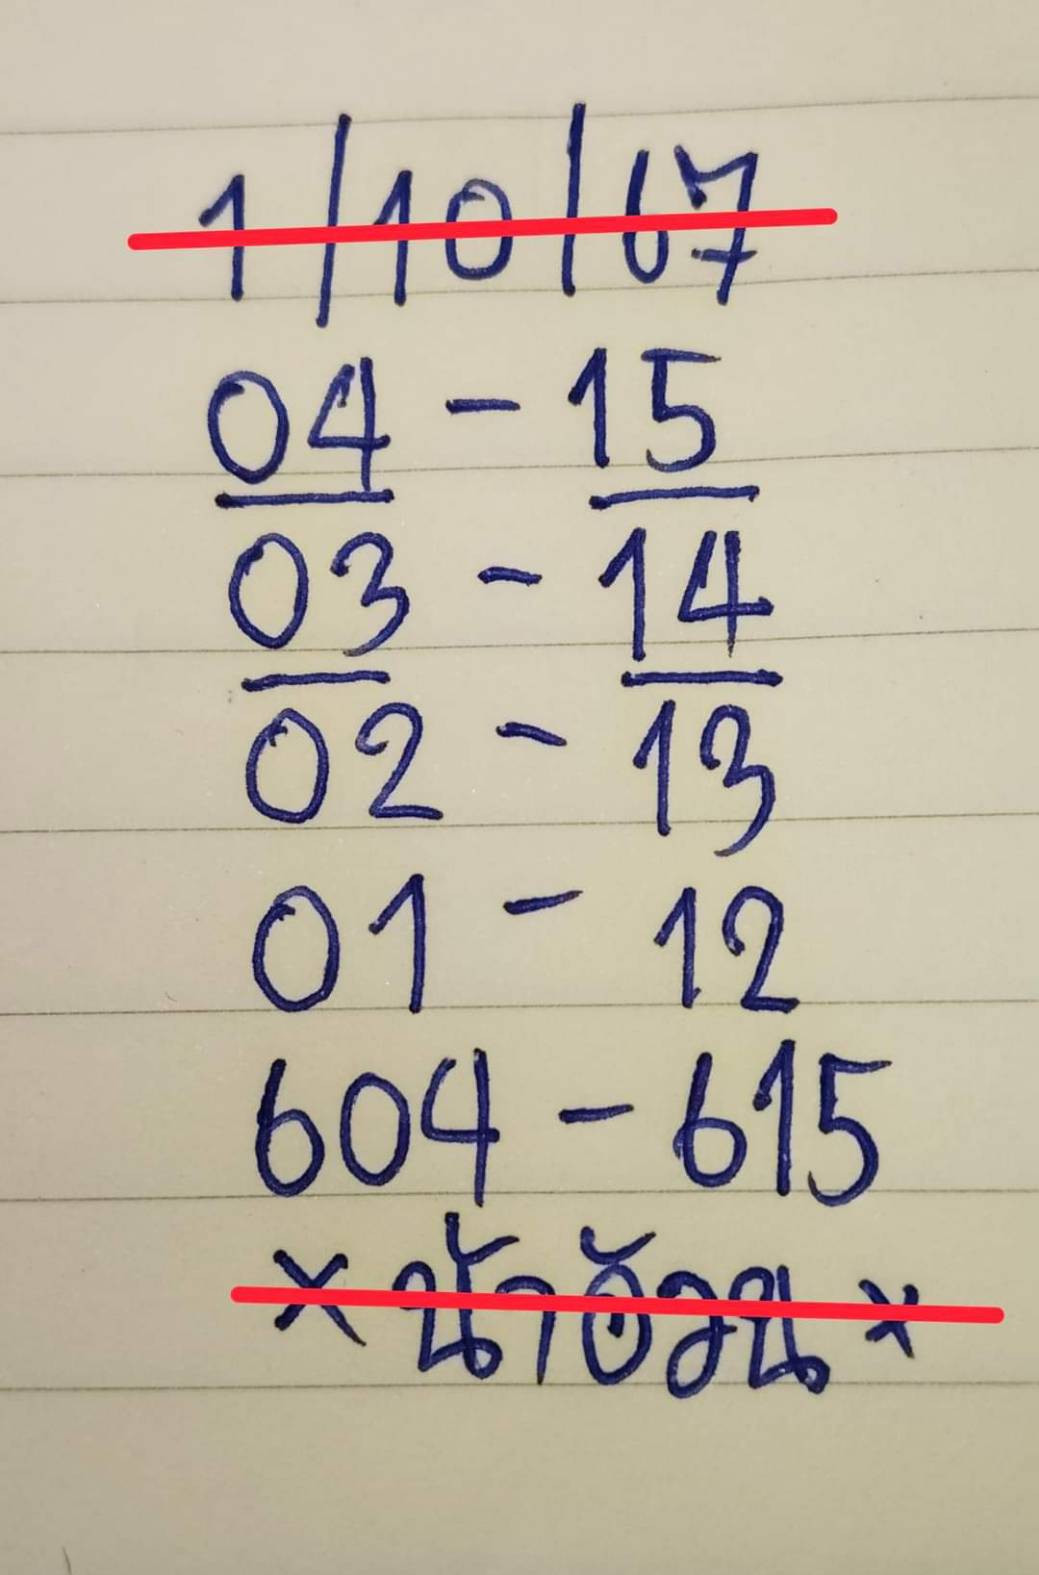 1/10/67
04 - 15
03 - 14
02 - 13
01 - 12
604 - 615
× น้าอ้วน ×